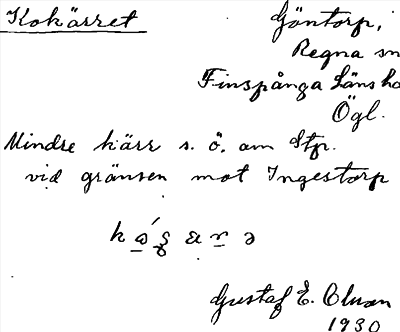 Kokärret
Göntorp,
Regna sn
Finspånga läns
Ögl.
Mindre kärr s. ö. om Stp.
vid gränsen mot Ingestorp
Gustaf E. Olsson
1930